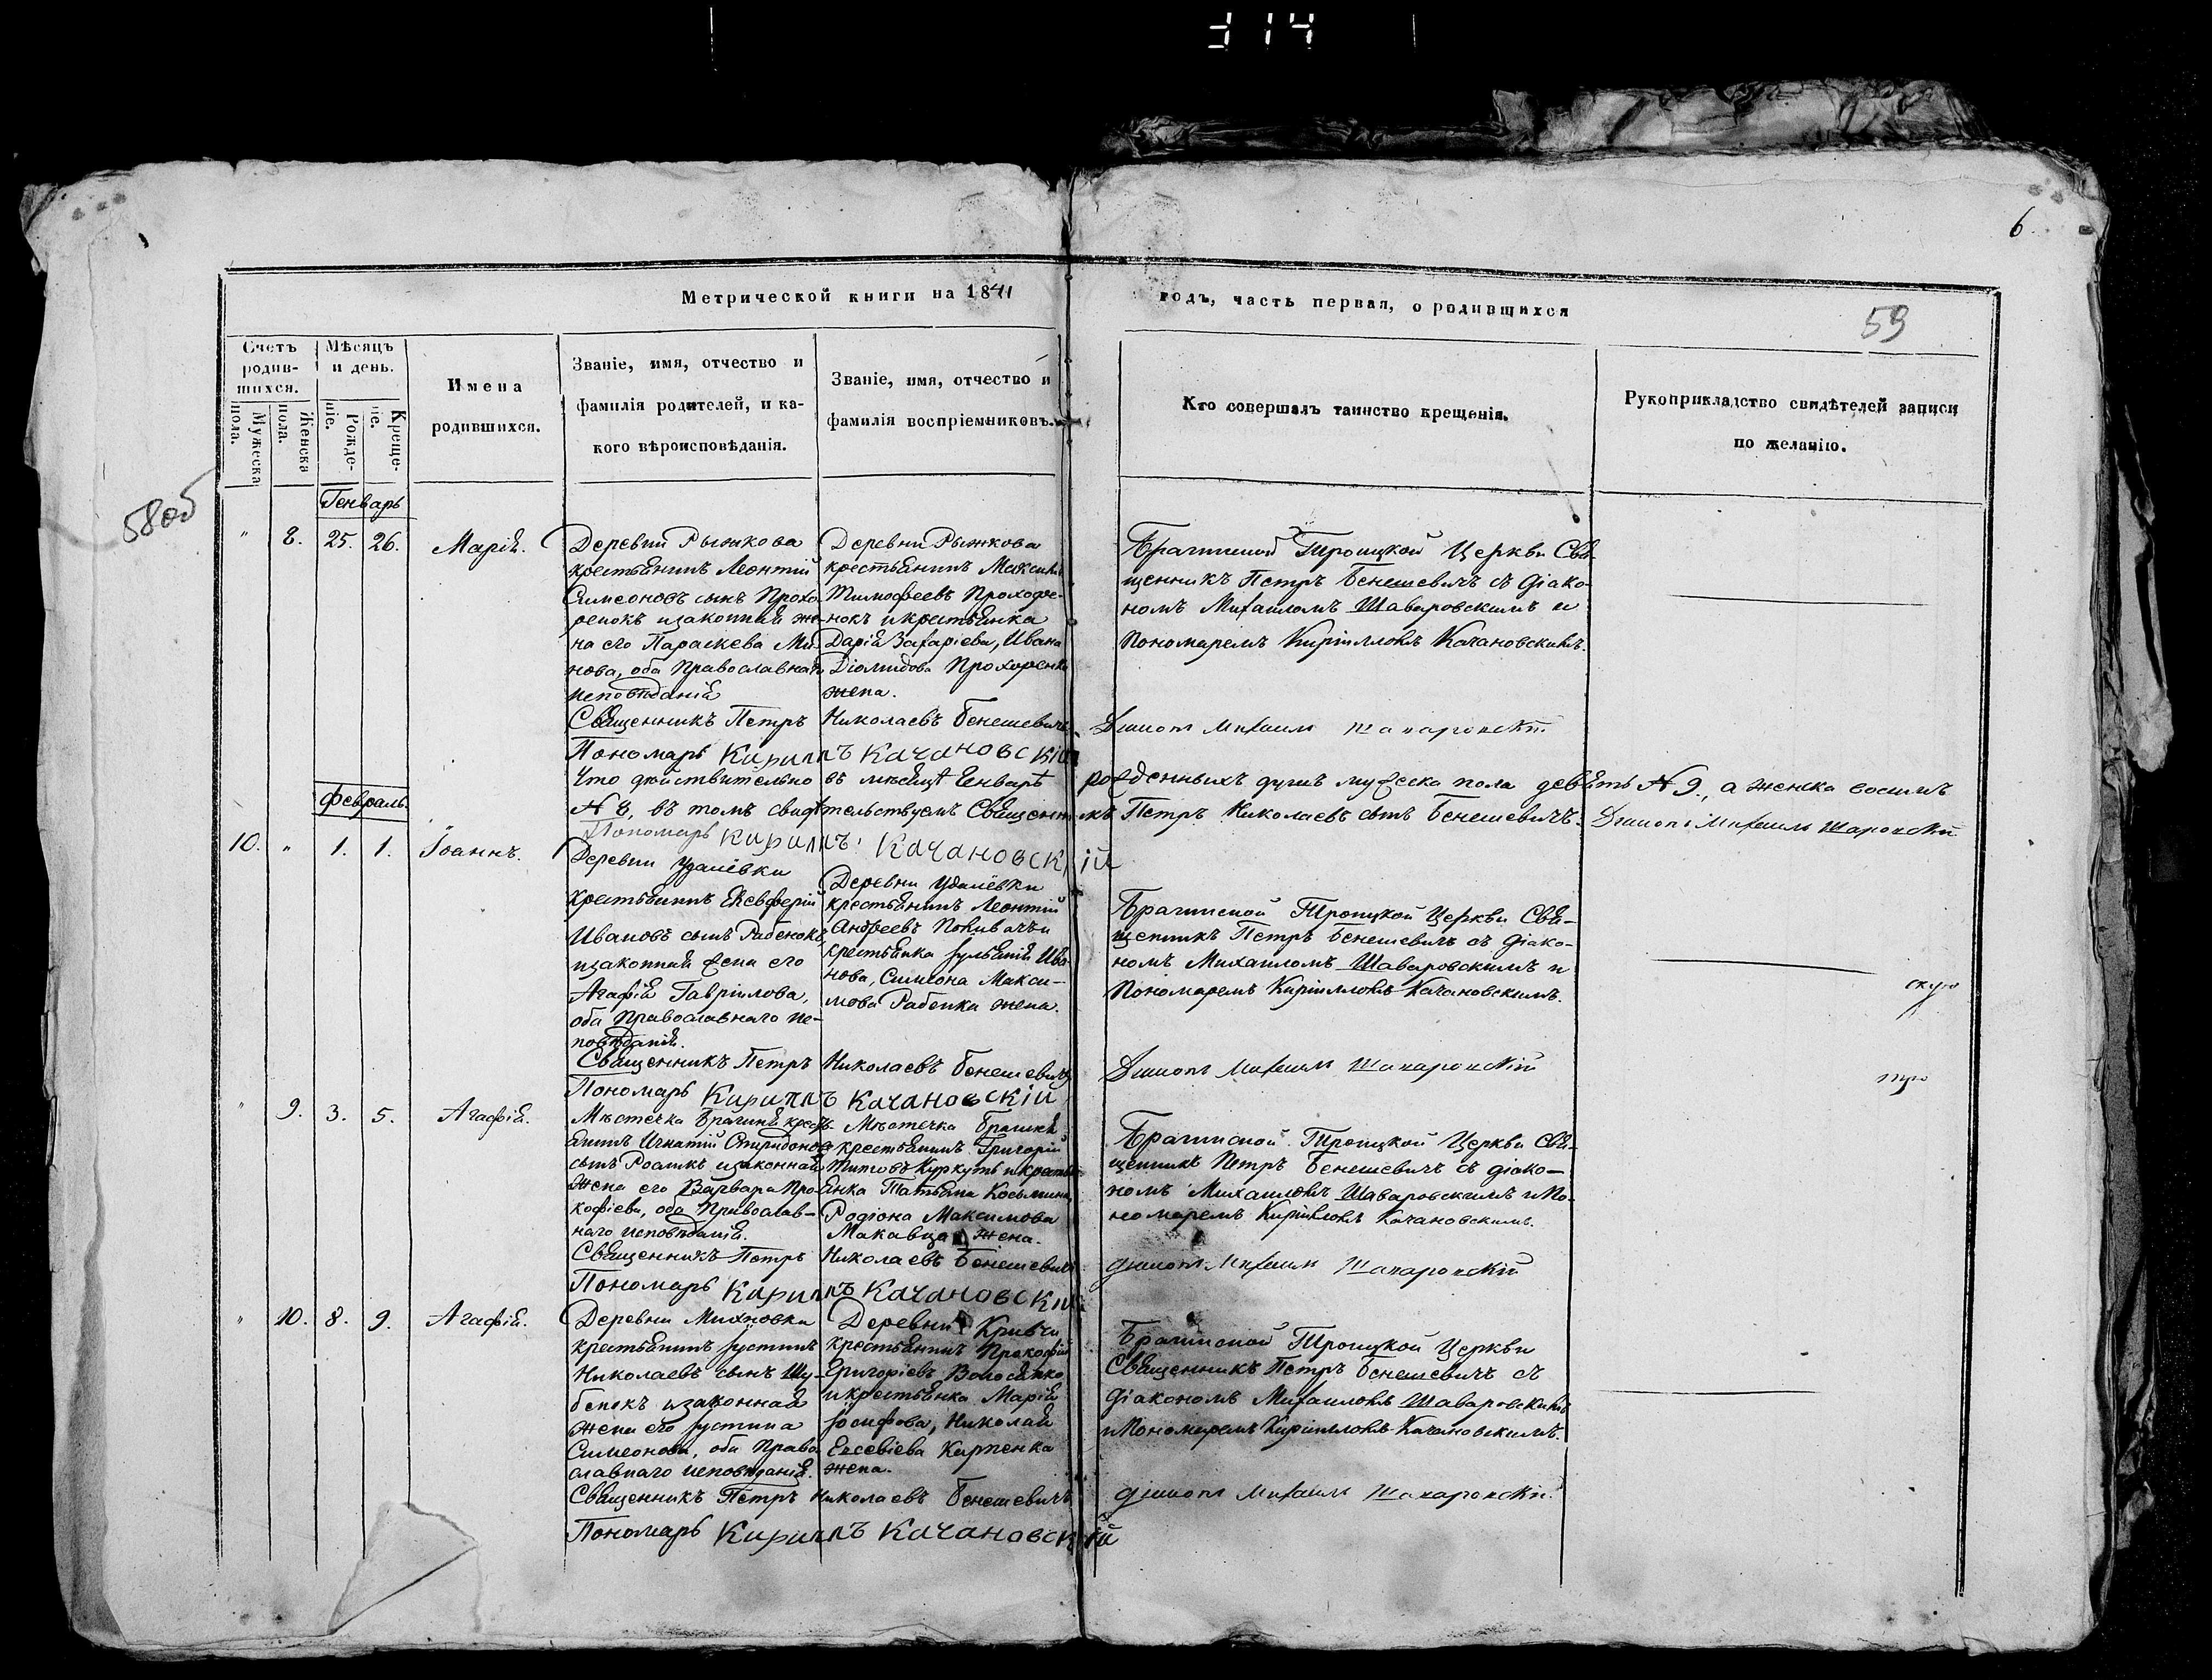 314
6.
Метрической книги на 1841
годъ, часть первая, о родившихся
59
58об
Счетъ родившихся.
Мужеска пола.
Женска пола.
Мѣсяцъ и день.
Рожденіе.
Крещеніе.
Имена
родившихся.
Званіе, имя, отчество и
фамилія родителей, и ка-
кого вѣроисповѣданія.
Званіе, имя, отчество и
фамилія воспріемниковъ.
Кто совершалъ таинство крещенія.
Рукоприкладство свидѣтелей записи
по желанію.
Генварь
" 8. 25. 26. Марія.
Деревни Рыжкова
крестьянинъ Леонтій
Симеоновъ сынъ Прохо-
ренокъ изаконная же-
на его Параскева Ми-
нова, оба Православнаго
исповѣданія
Деревни Рыжкова
крестьянинъ Максимъ
Тимофеевъ Прохоре-
нокъ икрестьянка
Дарія Захаріева, Ивана
Діомидова Прохоренка
жена.
Брагинской Троицкой Церкви Свя-
щенникъ Петръ Бенешевичъ съ діако-
номъ Михаиломъ Шаваровскимъ и
Пономаремъ Кирилломъ Качановскимъ.
Священникъ Петръ Николаевъ Бенешевичъ
Діаконъ Михаилъ Шаваровскій
Пономарь Кириллъ Качановскій
Что дѣйствительно въ мѣсяцѣ Генварѣ рожденныхъ душъ мужеска пола девять № 9., а женска восемь
№ 8, въ томъ свидѣтельствуемъ Священникъ Петръ Николаевъ сынъ Бенешевичъ. Діаконъ Михаилъ Шаровскій
Пономарь Кириллъ Качановскій
Февраль.
10. " 1. 1. Іоаннъ.
Деревни Удалёвки
крестьянинъ Елевферій
Ивановъ сынъ Рабенокъ,
изаконная жена его
Агафія Гавріилова,
оба Православнаго ис-
повѣданія.
Деревни Удалёвки
крестьянинъ Леонтій
Андреевъ
крестьянка Іуліанія Ива-
нова, Симеона Макси-
мова Рабенка жена.
Брагинской Троицкой Церкви Свя-
щенникъ Петръ Бенешевичъ съ діако-
номъ Михаиломъ Шаваровскимъ и
Пономаремъ Кирилломъ Качановскимъ.
Священникъ Петръ Николаевъ Бенешевичъ
Діаконъ Михаилъ Шаваровскій
Пономарь Кириллъ Качановскій
" 9. 3. 5. Агафія.
Мѣстечка Брагиня крес-
янинъ Игнатій Спиридоновъ
сынъ Роашкъ изаконная
жена его Варвара Про-
кофіева, оба Православ-
наго исповѣданія.
Мѣстечка Брагиня
крестьянинъ Григорій
Титовъ Куркуть икресть-
янка Татьяна Косьмина,
Родіона Максимова
Макавца жена.
Брагинской Троицкой Церкви Свя-
щенникъ Петръ Бенешевичъ съ діако-
номъ Михаиломъ Шаваровскимъ иПо-
номаремъ Кирилломъ Качановскимъ.
Священникъ Петръ Николаевъ Бенешевичъ
діаконъ Михаилъ Шаваровскій
Пономарь Кириллъ Качановскій
" 10. 8. 9. Агафія.
Деревни Михновки
крестьянинъ Іустинъ
Николаевъ сынъ Шу-
бенокъ изаконная
жена его Іустина
Симеонова, оба Право-
славнаго исповѣданія.
Деревни Кривчи
крестьянинъ Прокофій
Григоріевъ Волосянко
икрестьянка Марія
Іосифова, Николая
Евсевіева Карпенка
жена.
Брагинской Троицкой Церкви
Священникъ Петръ Бенешевичъ съ
діакономъ Михаиломъ Шаваровскимъ
иПономаремъ Кирилломъ Качановскимъ.
Священникъ Петръ Николаевъ Бенешевичъ
діаконъ Михаилъ Шаваровскій
Пономарь Кириллъ Качановскій